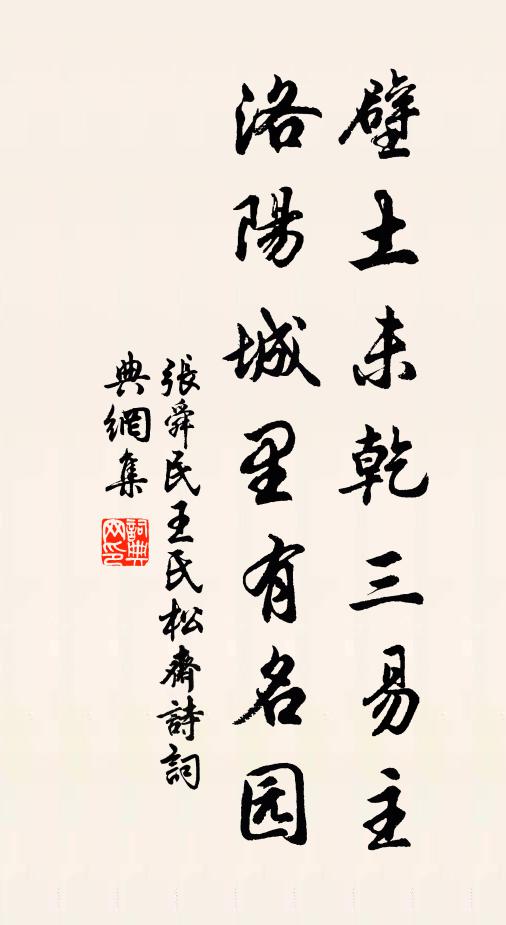 壁土未乾三易主
洛陽城里有名园
張舜民王民松齋詩詞
典網集
詞典网印